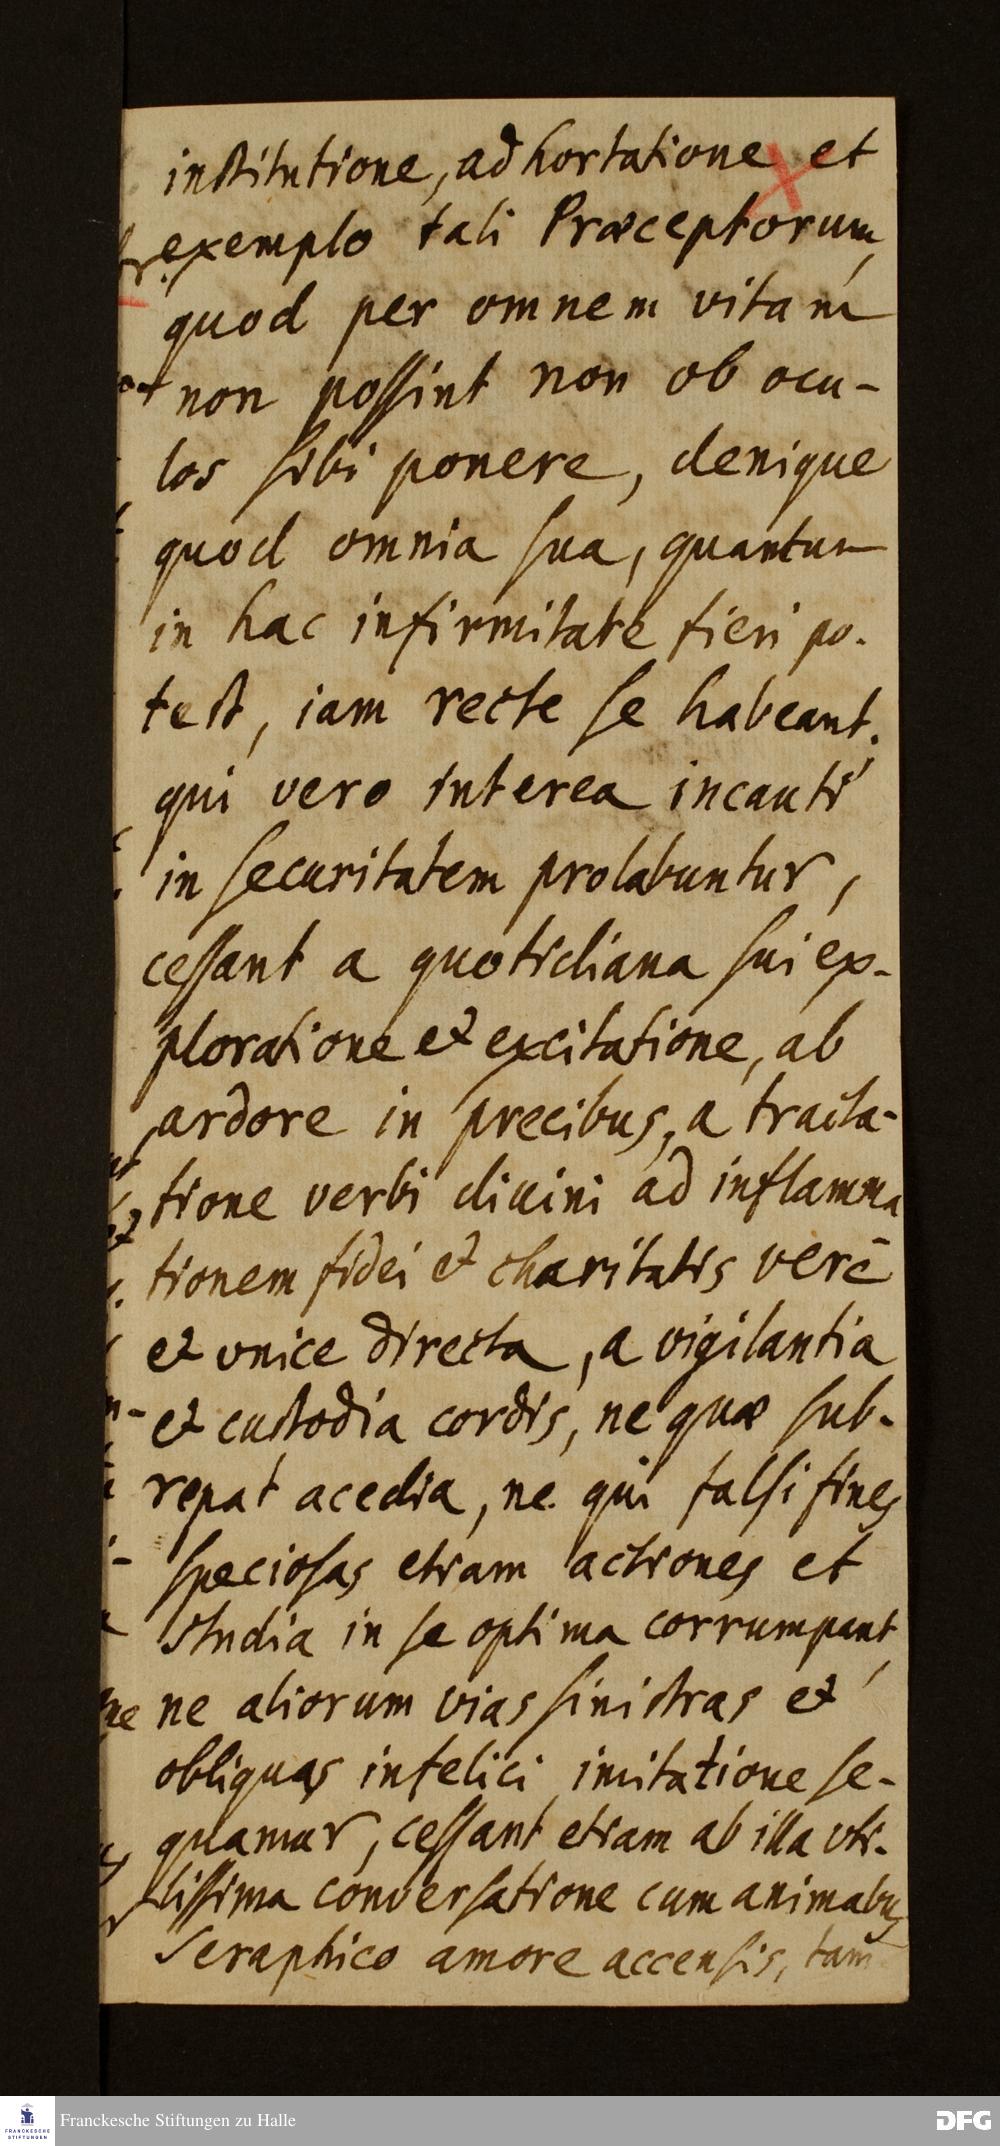 institutione, adhortatione et
exemplo tali Præceptorum,
quod per omnem vitam
non possint non ob ocu-
los sibi ponere, denique
quod omnia sua, quantum
in hac infirmitate fieri po-
test, iam recte se habeant.
qui vero interea incauti
in securitatem prolabuntur,
cessant a quotidiana sui ex-
ploratione et excitatione, ab
ardore in precibus, a tracta-
tione verbi divini ad inflamma
tionem fidei et charitatis verē
et unice directa, a vigilantia
et custodia cordis, ne quæ sub-
repat acedia, ne qui falsi fines
speciosas etiam actiones et
studia in se optima corrumpant,
ne aliorum vias sinistras et
obliquas infelici imitatione se-
quamur, cessant etiam ab illa vti-
lissima conversatione cum animabus
Seraphico amore accensis, tam
FRANCKESCHE
STIFTUNGEN
Franckesche Stiftungen zu Halle
DFG